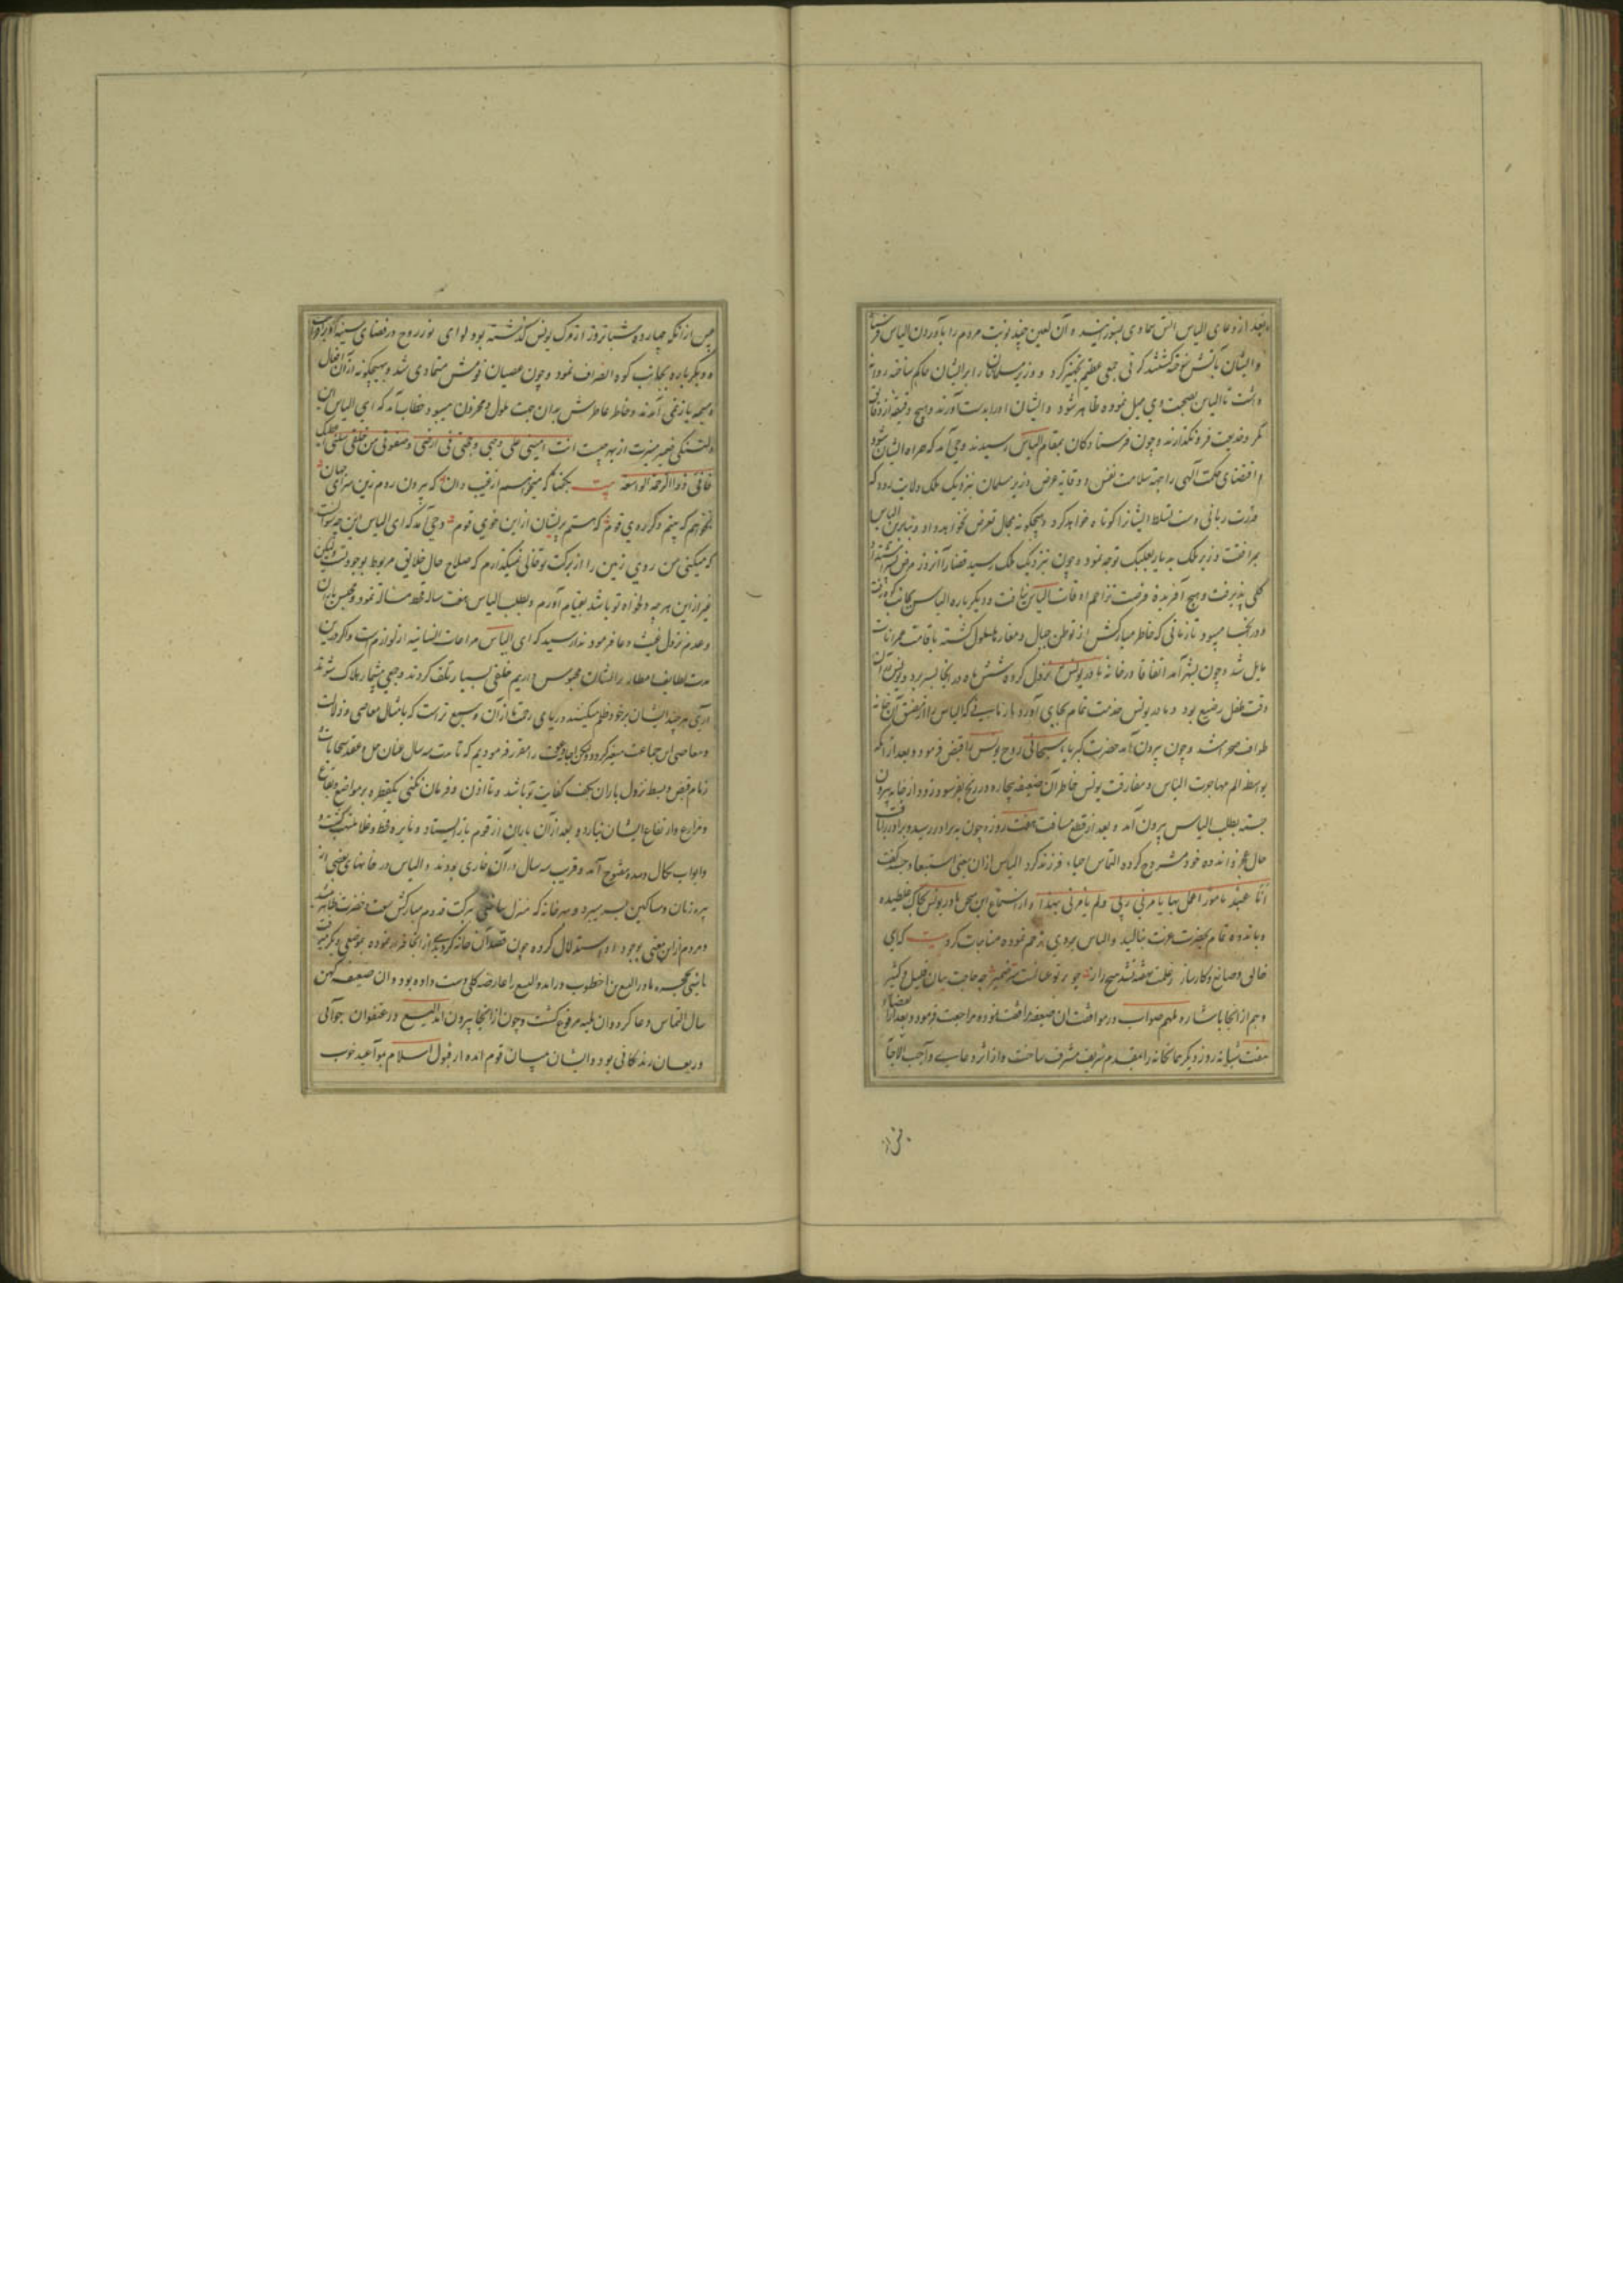 بعد از دعای الیاس آتش سماوی بسوزانید و آن لعین چند نوبت مردم را بآوردن الیاس
و ایشان بآتش سوخته گشتند کرتی جمعی عظیم تجهیز کرد و وزیر مسلمان را بر ایشان حاکم ساخته روانه
داشت تا الیاس بصحبت وی میل نموده ظاهر شود و ایشان او را بدست آورند و هیچ دقیقه از دقایق
مکر و خدیعت فرو نگذارند و چون فرستادگان بمقام الیاس رسیدند وحی آمد که همراه ایشان شود
اقتضای حکمت آلهی را جهة سلامت نفس و وقایه عرض وزیر مسلمان بنزدیک ملک ولایت رو که
قدرت ربانی دست تسلط ایشانرا کوتاه خواهد کرد و هیچگونه مجال تعرض نخواهد داد و بنابرین الیاس
بمرافقت وزیر ملک به دیار بعلبک توجه نمود و چون بنزدیک ملک رسید قضا را آنروز مرض پسرش
کلی پذیرفت و هیچ آفریده فرصت تزاحم اوقات الیاس نیافت و دیگر باره الیاس بجانب کوه رفت
و در آنجا میبود تا زمانی که خاطر مبارکش از توطن جبال و مغارها ملول گشته باقامت عمرانات
مایل شد و چون بشهر آمد اتفاقا در خانه مادر یونس نزول کرده شش ماه در آنجا بسر برد و یونس در آن
وقت طفل رضیع بود و مادر یونس خدمت تمام بجای آورد
طواف صحرا شد و چون بیرون آمد حضرت کبریاء سبحانی روح یونس را قبض فرمود و بعد از آنکه
بواسطه الم مهاجرت الیاس و مفارقت یونس خاطر آن ضعیفه بیچاره در رنج بفرسود و زود از خانه بیرون
جسته بطلب الیاس بیرون آمد و بعد از قطع مسافت هفت روزه چون بدو در رسید
حال عجز و اندوه خود مشروح کرده التماس احیاء فرزند کرد الیاس از آن معنی استبعاد جسته گفت
انا عبد مامور اعمل بما یامرنی ربی و لم یامرنی بهذا و از استماع این سخن مادر یونس بخاک غلطیده
و باندوه تمام بحضرت عزت بنالید و الیاس بروی ترحم نموده مناجات کرد بیت کای
خالق و صانع و کارساز ز علمت نهفته نشد هیچ راز چو بر تو عیانست سر ضمیر چه حاجت بیان قلیل و کثیر
و هم از آنجا باشاره ملهم صواب در موافقت آن ضعیفه مرافقت نموده مراجعت فرمود و بعد از انقضاء
هفت شبانه روز دیگر همانخانه را بمقدم شریف مشرف ساخت و از اثر دعاء واجب الاجابه
پس از آنکه چهارده شبانروز از مرگ یونس گذشته بود لوای نور روح در فضای سینه او برافراخت
و دیگر باره بجانب کوه انصراف نمود و چون عصیان قومش متمادی شد و بهیچگونه از آن افعال
ذمیمه باز نمی آمدند خاطر عاطرش بدان جهت ملول و محزون میبود خطاب آمد که ای الیاس این
دلتنگی ضمیر منیرت از بهر چیست انت امینی علی وحیی و حجتی فی ارضی و صفوتی من خلقی سلنی اعطیک
فانی ذو الرحمة الواسعه بیت بگفتا که میخواهم از غیب دان که بیرون روم زین سرای جهان
نخواهم که بینم دگر روی قوم که هستم پریشان ازین خوی قوم وحی آمد که ای الیاس این چه سوالست
که میکنی من روی زمین را از برکت تو خالی نمیگذارم که صلاح حال خلایق مربوط بوجود تست ولیکن
غیر ازین هر چه دلخواه تو باشد بتقدیم آورم و بطلب الیاس هفت ساله قحط مساله نمود و حبس باران
و عدم نزول غیث دعا فرمود ندا رسید که ای الیاس مراعات انسانیه از لوازم است و اگر در این
مدت لطایف امطار را از ایشان محبوس داریم خلقی بسیار تلف گردند و جمعی بیشمار هلاک شوند
آری هر چند ایشان بر خود ظلم میکنند دریای رحمت از آن وسیع تر است که بامثال معاصی و زلات
و معاصی این جماعت متغیر گردد مقرر فرمودیم که تا مدت سه سال عنان حل و عقد سحابات
زمام قبض و بسط نزول باران بکف کفایت تو باشد و تا اذن و فرمان نکنی یکقطره بر مواضع و بقاع
و مزارع و ارتفاع ایشان نبارد و بعد از آن باران از قوم باز ایستاد و نایره قحط و غلا ملتهب گشت
و ابواب مفتوح آمد و قریب سه سال در آن خواری بودند و الیاس در خانهای بعضی از
پیره زنان و مساکین بسر میبرد و هر خانه که منزل ساختی ببرکت قدوم مبارکش
و مردم از این معنی بوجود او استدلال کرده چون قصد آن خانه کردندی از آنجا فرار نموده بموضعی دیگر میرفت
تا شبی بحجره مادر الیسع بن اخطوب درآمد و الیسع را عارضه کلی دست داده بود و آن ضعیفه کهن
سال التماس دعا کرد و آن بلیه مرفوع گشت و چون از آنجا بیرون آمد الیسع در عنفوان جوانی
و ریعان زندگانی بود و ایشان میان قوم آمده از قبول اسلام بمواعید خوب